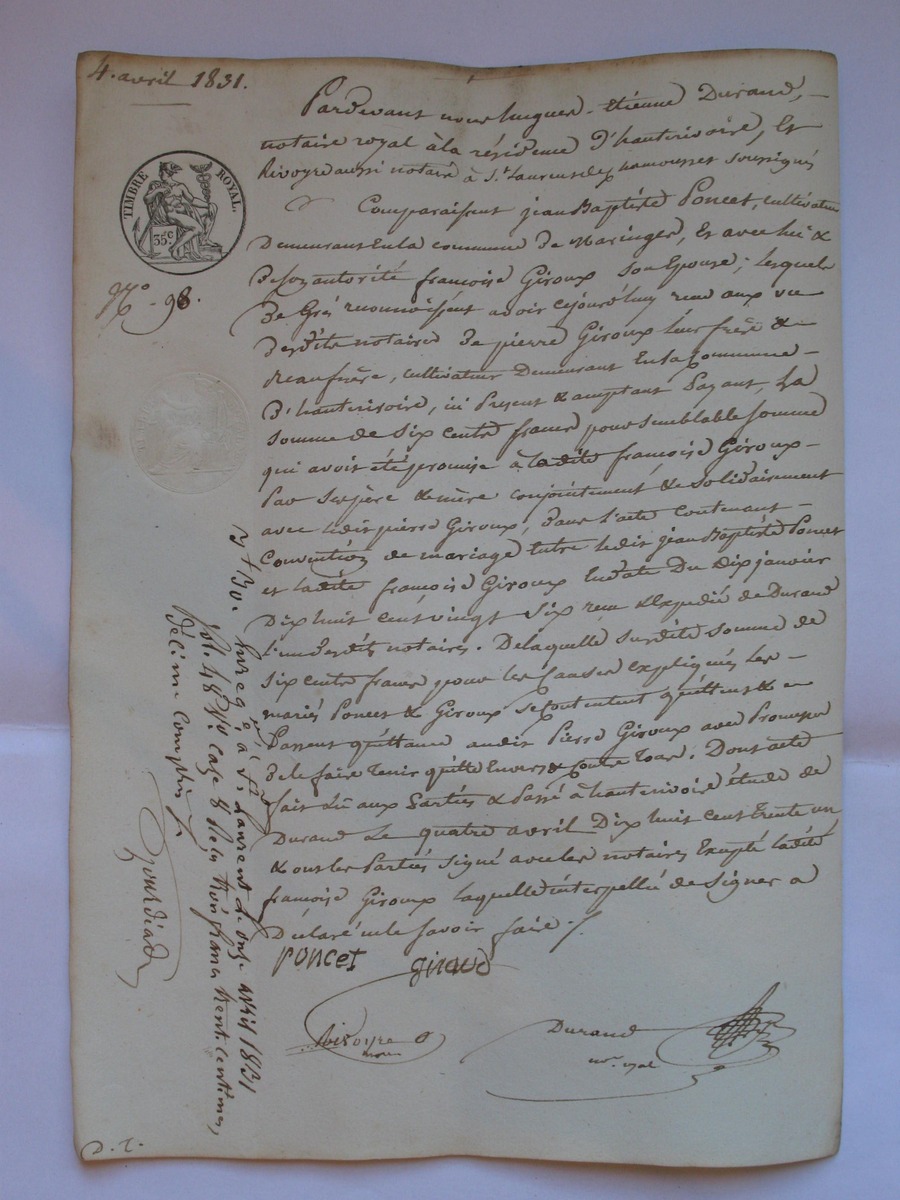 4. avril 1831.
Pardevant nous hugues-étienne Durand,
notaire royal à la résidence d'hauterivoire, Et
Rivoyre aussi notaire à St. Laurent de chamousset soussignés
Comparaissent jean Baptiste Poncet, cultivateur
Demeurant En la commune de Maringes, Et avec lui &
De son autorité françoise Giroux Son Epouse; lesquels
De Gré reconnoissent avoir cejourd'huy reçu aux vue
Desdits notaires De pierre Giroux leur frère &
Beaufrère, cultivateur Demeurant En la Commune
D'hauterivoire, ici Present & acceptant Payant, La
Somme de Six Cents francs pour semblable somme
qui avoit été promise à ladite françoise Giroux
Par Ses père & mère conjointement & Solidairement
avec ledit pierre Giroux, Dans l'acte contenant
Convention de mariage Entre ledit jean Baptiste Poncet
et ladite françoise Giroux En date Du Dix janvier
Dix huit cent vingt Six reçu & Expédié de Durand
l'un Desdits notaires. De laquelle Susdite somme de
Six cents francs pour les Causes expliquées les
mariés Poncet & Giroux Se Contentent quittent & en
Passent quittance audit Pierre Giroux avec Promesse
De le faire Tenir quitte Envers & Contre Tous. Dont acte
fait Lu aux Parties & Passé à hauterivoire étude de
Durand Le quatre avril Dix huit cent trente un,
& ont les Parties Signé avec les notaires Excepté ladite
françoise Giroux laquelle interpellée de Signer a
Déclaré ne le Savoir faire ./.
poncet giraud
Rivoyre
notre
Durand
nore. royal
TIMBRE ROYAL.
35c
No. 98.
Enregé à St. Laurent le onze avril 1831
fol. 48 Vo. case 8 Reçu trois francs trente centimes,
Décime compris ./.
Gourdiat
D. T.